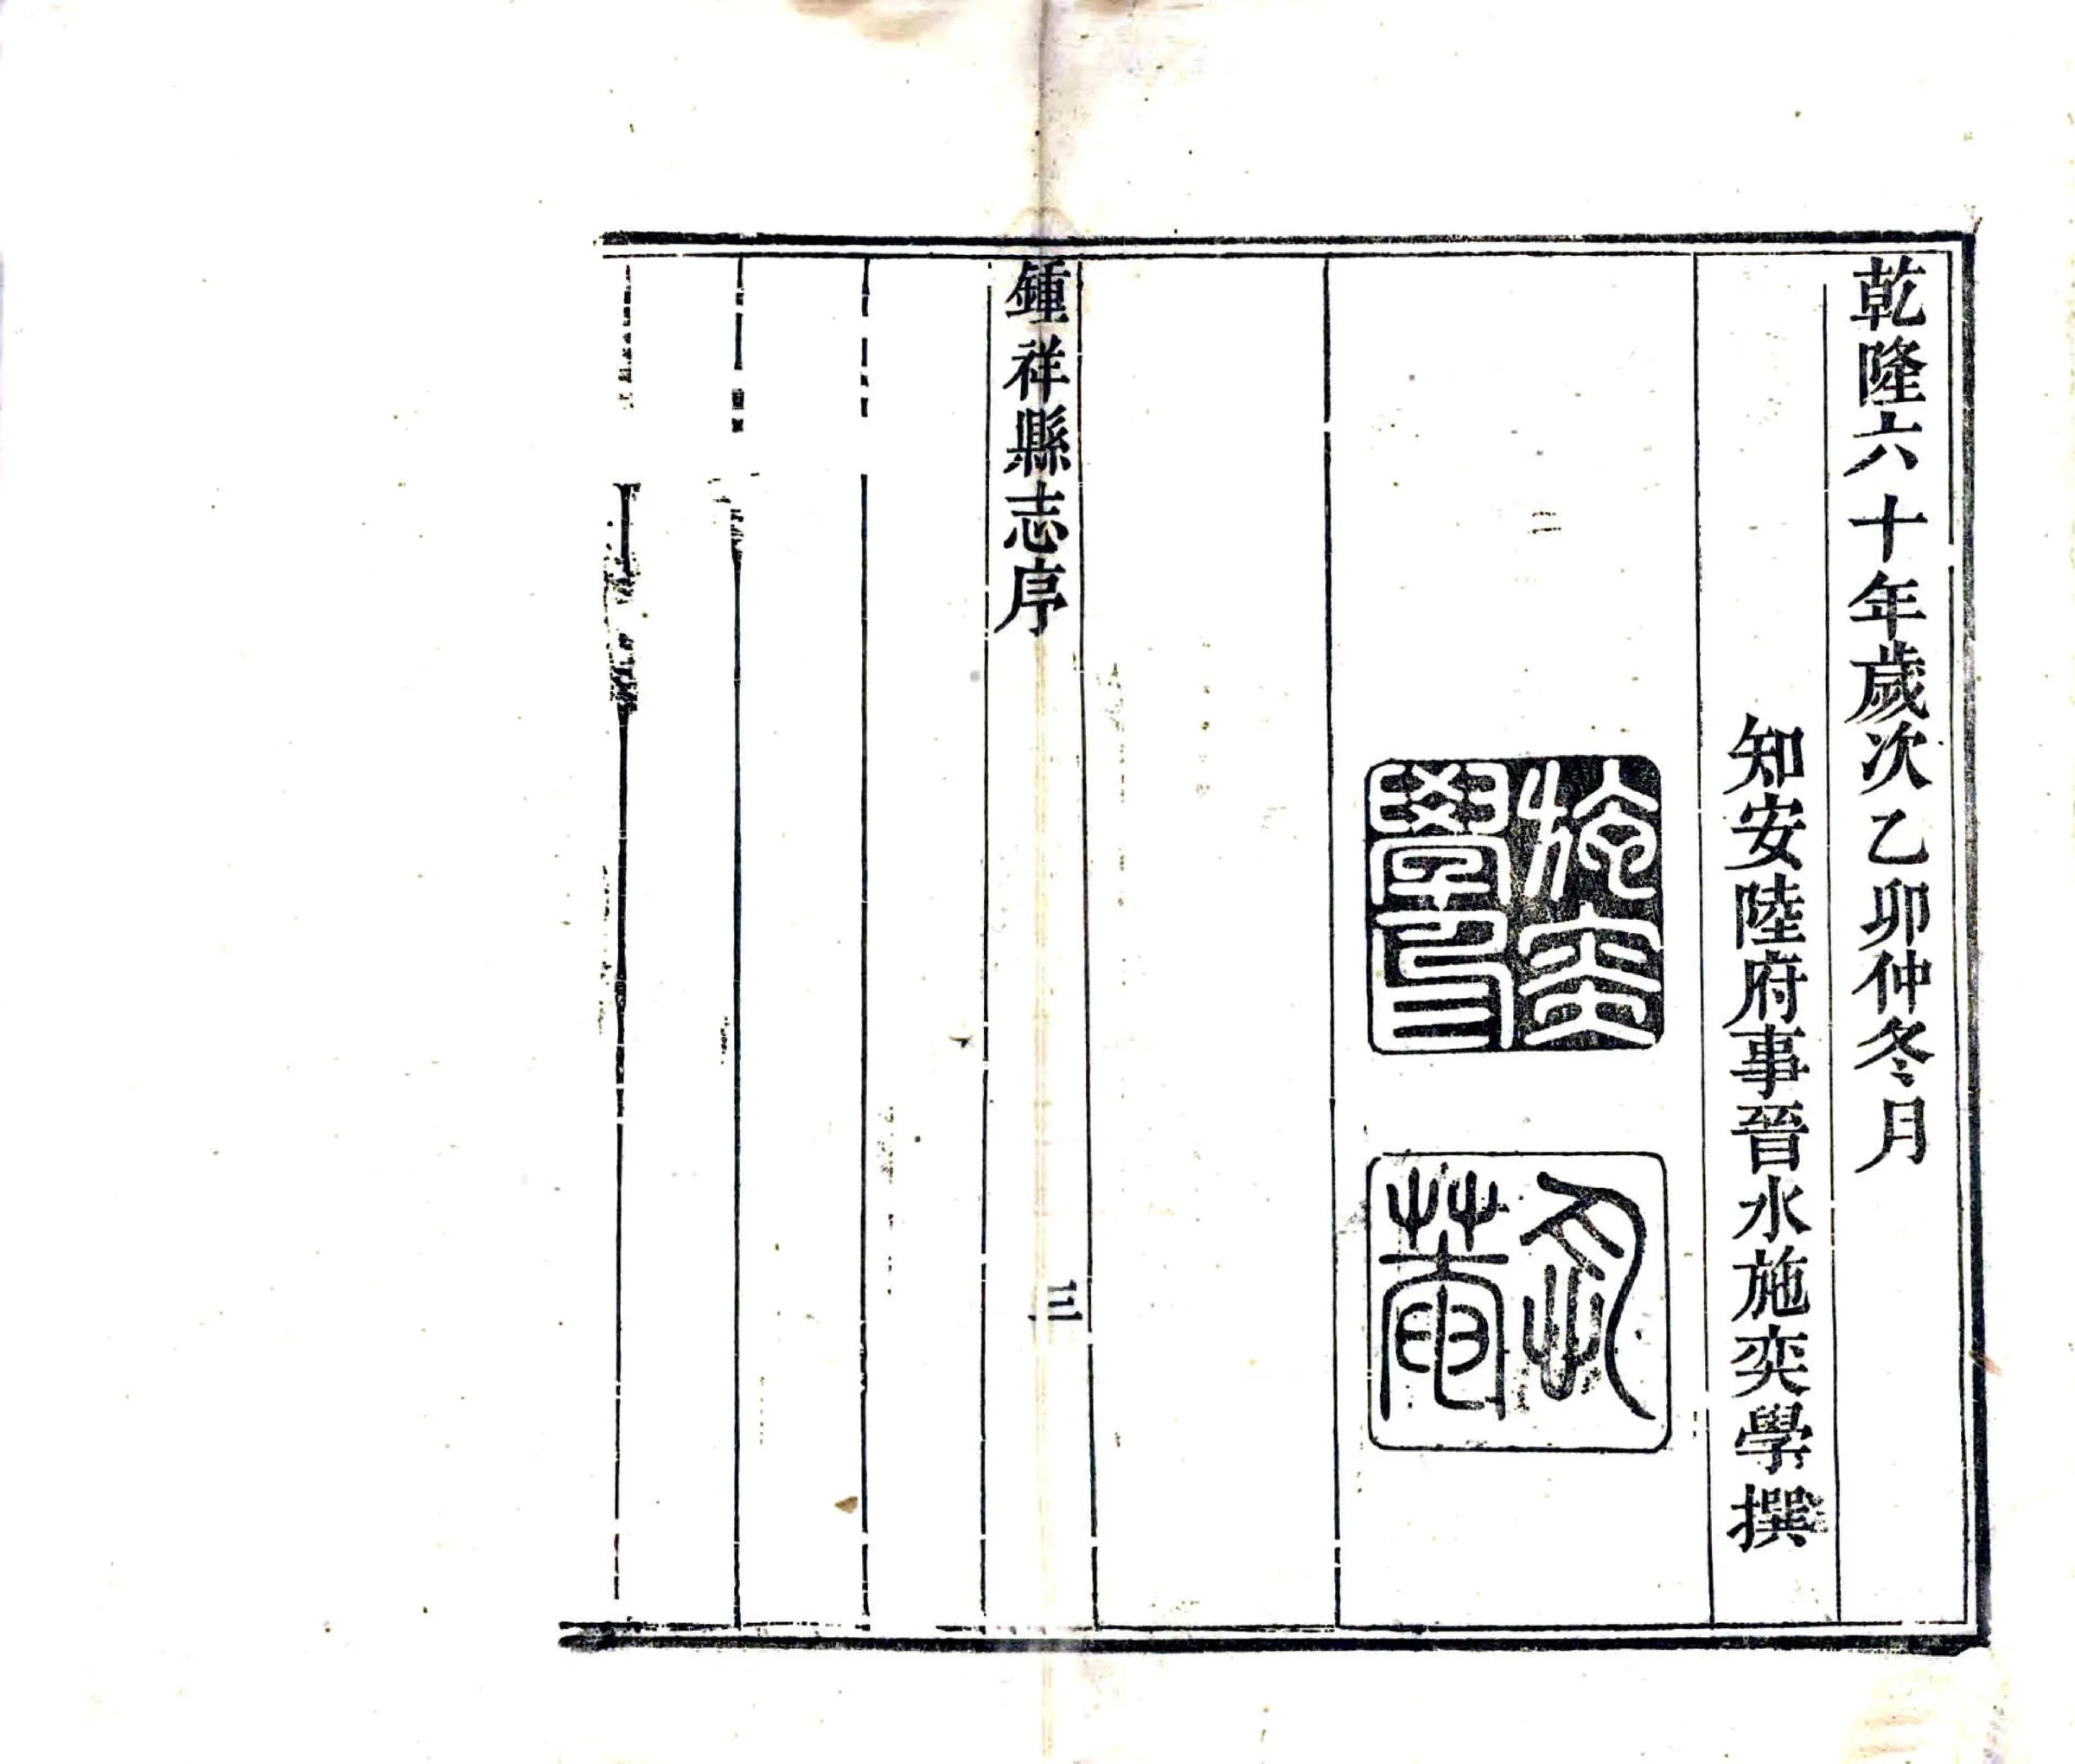 乾隆六十年歲次乙卯仲冬月
知安陸府事晉水施奕學撰
施奕
學印
菴
鍾祥縣志序
三